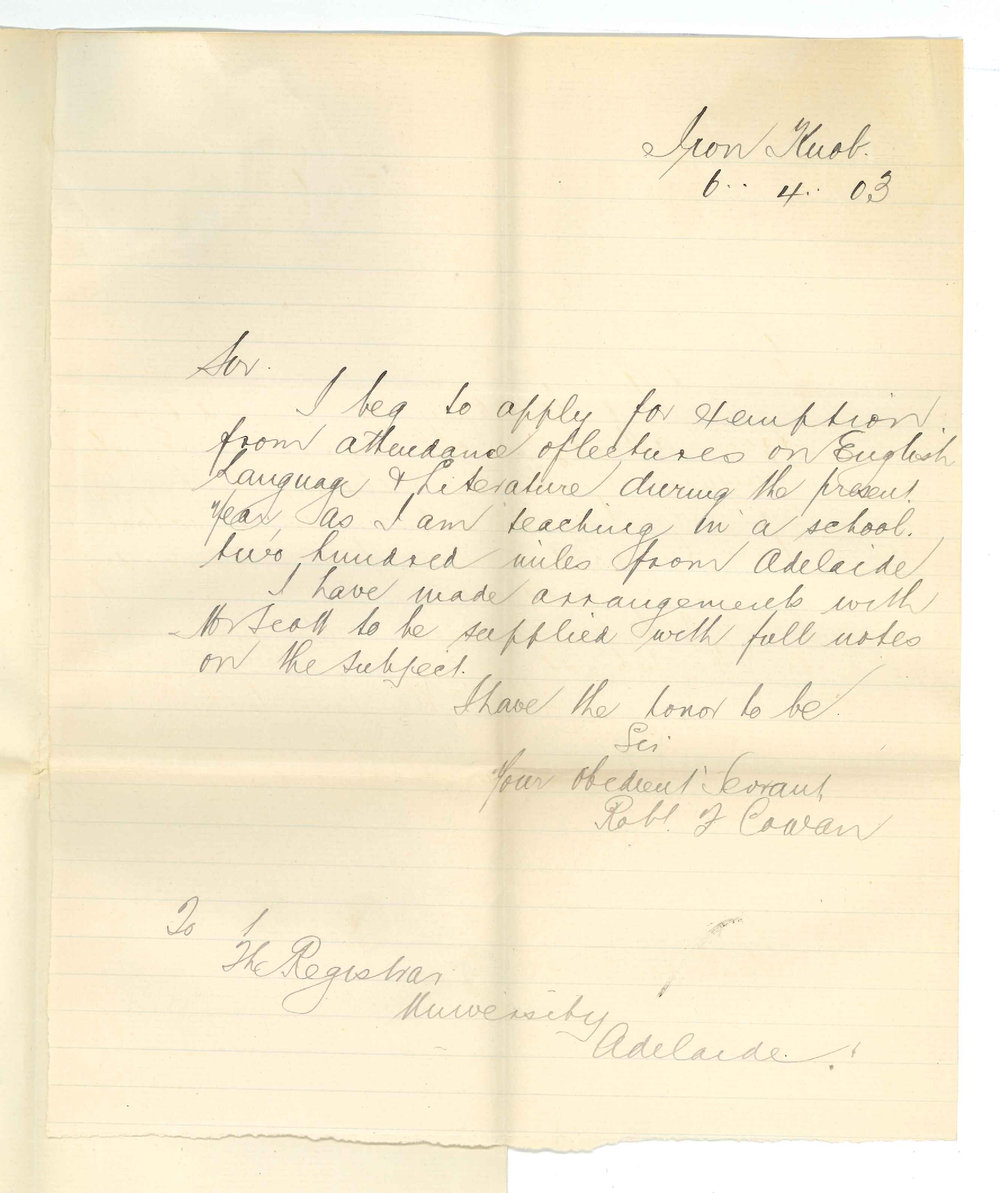 Iron Knob.
6.. 4.. 03
Sir.
I beg to apply for exemption
from attendance of lectures on English
Language & Literature during the present
Year, as I am teaching in a school.
two hundred miles from Adelaide
I have made arrangements with
Mr Scott to be supplied with full notes
on the subject.
I have the honor to be
Sir
Your obedient Servant,
Robt. F Cowan
To
The Registrar
University
Adelaide.